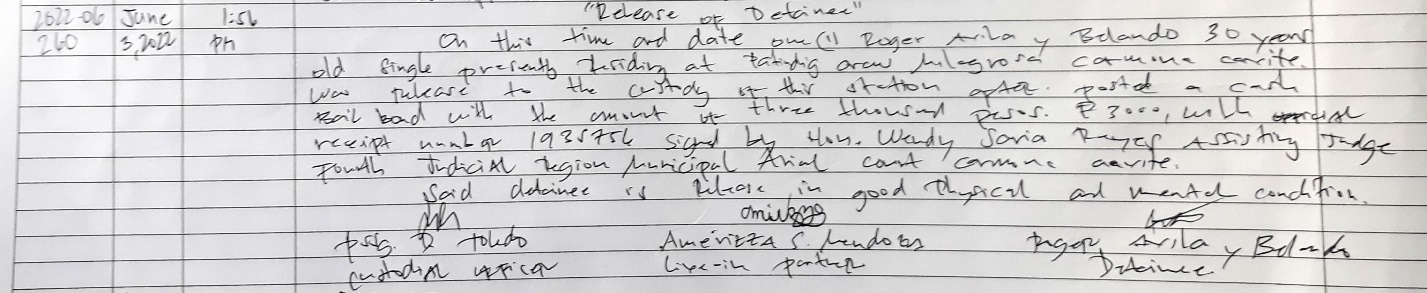 2022-06 June 1:56 "Release of Detainee"
260 3, 2022 PM On this time and date one (1) Roger Avila y Belando 30 years
old single presently residing at tatindig araw Milagrosa carmona cavite.
was release to the custody of this station after posted a cash
bail bond with the amount of three thousand pesos. ₱ 3000, with official
receipt number 1935756 signed by Hon. Wendy Soria Reyes Assisting Judge
Fourth Judicial Region Municipal Trial court carmona cavite.
Said detainee is Release in good Physical and mental condition.
PSSg. R Toledo Amerizza S. Mendoza Roger Avila y Belando
custodial officer Live-in partner Detainee